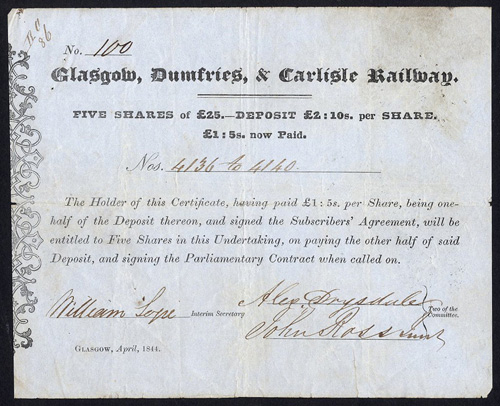 No. 100
Glasgow, Dumfries, & Carlisle Railway.
FIVE SHARES of £25.—DEPOSIT £2:10s. per SHARE.
£1:5s. now Paid.
Nos. 4136 to 4140.
The Holder of this Certificate, having paid £1:5s. per Share, being one-
half of the Deposit thereon, and signed the Subscribers' Agreement, will be
entitled to Five Shares in this Undertaking, on paying the other half of said
Deposit, and signing the Parliamentary Contract when called on.
William Interim Secretary
Alex. Drysdale
John Ross Junr
Two of the
Committee.
GLASGOW, April, 1844.